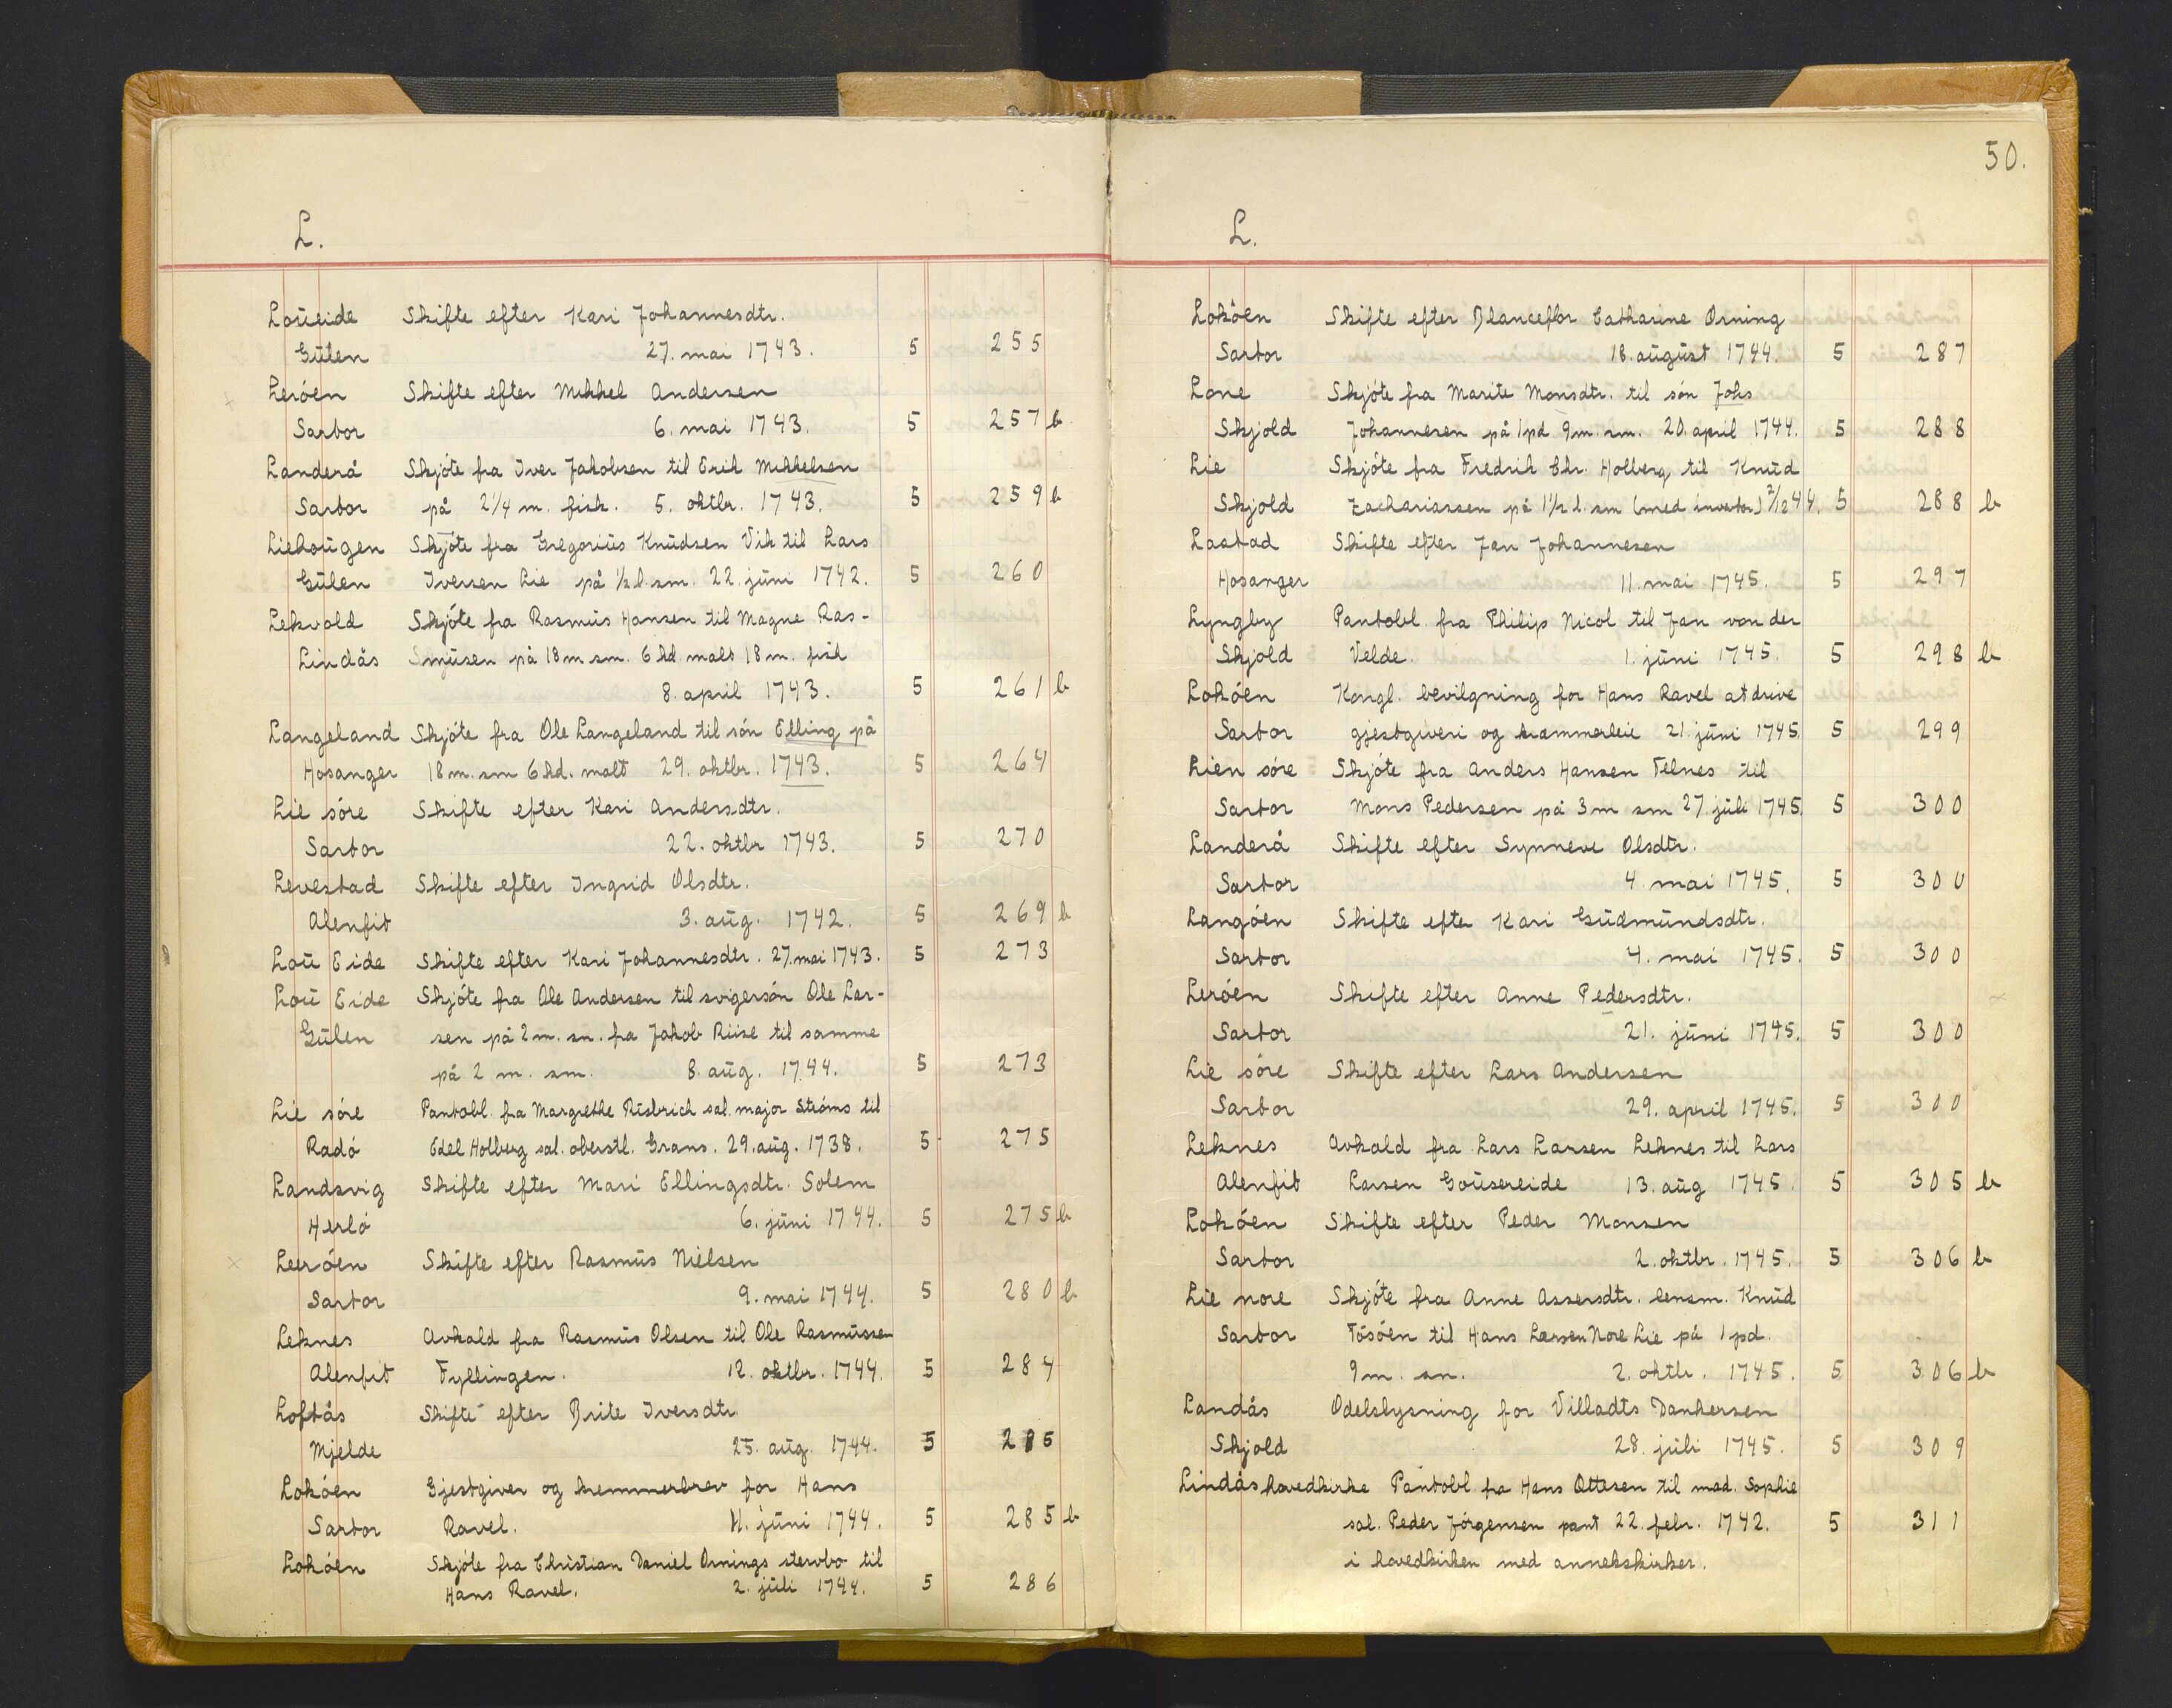 L.
Loüeide Skifte efter Kari Johannesdtr.
Gülen 27. mai 1743. 5 255
Leróen Skifte efter Mikkel Andersen
Sartor 6. mai 1743. 5 257 b
Landerå Skjóte fra Iver Jakobsen til Erik Mikkelsen
Sartor på 2 1/4 m. fisk. 5. oktbr. 1743. 5 259 b
Liehoügen Skjóte fra Gregoriüs Knüdsen Vik til Lars
Gülen Iversen Lie på 1/2 l. sm. 22. jüni 1742. 5 260
Lekvold Skjóte fra Rasmüs Hansen til Magne Ras-
Lindås müsen på 18 m sm. 6 kd. malt 18 m. fisk
8. april 1743. 5 261 b
Langeland Skjóte fra Ole Langeland til són Elling på
Hosanger 18 m. sm 6 kd. malt 29. oktbr. 1743. 5 264
Lie sóre Skifte efter Kari Andersdtr.
Sartor 22. oktbr 1743. 5 270
Levestad Skifte efter Ingrid Olsdtr.
Alenfit 3. aüg. 1742. 5 269 b
Loü Eide Skifte efter Kari Johannesdtr. 27. mai 1743. 5 273
Loü Eide Skjóte fra Ole Andersen til svigersón Ole Lar-
Gülen sen på 2 m. sm. fra Jakob Riise til samme
på 2 m. sm. 8. aüg. 1744. 5 273
Lie sóre Pantobl. fra Margrethe Risbrich sal. major Stróms til
Radó Edel Holberg sal. oberstl. Grans. 29. aüg. 1738. 5 275
Landsvig Skifte efter Mari Ellingsdtr. Solem
Herló 6. jüni 1744. 5 275 b
Leeróen Skifte efter Rasmüs Nielsen
Sartor 9. mai 1744. 5 280 b
Leknes Avkald fra Rasmüs Olsen til Ole Rasmüssen
Alenfit Fyllingen. 12. oktbr. 1744. 5 284
Loftås Skifte efter Brite Iversdtr
Mjelde 25. aüg. 1744. 5 285
Lokóen Gjestgiver og kremmerbrev for Hans
Sartor Ravel. 11. jüni 1744. 5 285 b
Lokóen Skjóte fra Christian Daniel Ornings stervbo til
Hans Ravel. 2. jüli 1744. 5 286
50.
L.
Lokóen Skifte efter Blanceflor Catharine Orning
Sartor 18. aügüst 1744. 5 287
Lone Skjóte fra Marite Monsdtr. til són Johs
Skjold Johannesen på 1 pd 9 m. sm. 20. april 1744. 5 288
Lie Skjóte fra Fredrik Chr. Holberg til Knüd
Skjold Zachariassen på 1 1/2 l. sm (med invertor) 2/12 44. 5 288 b
Lastad Skifte efter Jan Johannesen
Hosanger 11. mai 1745. 5 297
Lyngby Pantobl. fra Philip Nicol til Jan von der
Skjold Velde. 1. jüni 1745. 5 298 b
Lokóen Kongl. bevilgning for Hans Ravel at drive
Sartor gjestgiveri og krammerleie 21. jüni 1745. 5 299
Lien sóre Skjóte fra Anders Hansen Telnes til
Sartor Mons Pedersen på 3 m sm 27. jüli 1745. 5 300
Landerå Skifte efter Synneve Olsdtr.
Sartor 4. mai 1745. 5 300
Langóen Skifte efter Kari Güdmündsdtr.
Sartor 4. mai 1745. 5 300
Leróen Skifte efter Anne Pedersdtr.
Sartor 21. jüni 1745. 5 300
Lie sóre Skifte efter Lars Andersen
Sartor 29. april 1745. 5 300
Leknes Avkald fra Lars Larsen Leknes til Lars
Alenfit Larsen Goüsereide 13. aüg 1745. 5 305 b
Lokóen Skifte efter Peder Monsen
Sartor 2. oktbr. 1745. 5 306 b
Lie nore Skjóte fra Anne Assersdtr. lensm. Knüd
Sartor Tósóen til Hans Larsen Nore Lie på 1 pd.
9 m. sm. 2. oktbr. 1745. 5 306 b
Landås Odelslysning for Villadts Dankersen
Skjold 28. jüli 1745. 5 309
Lindås hovedkirke Pantobl. fra Hans Ottesen til mad. Sophie
sal. Peder Jórgensen pant 22. febr. 1742. 5 311
i hovedkirken med annekskirker.